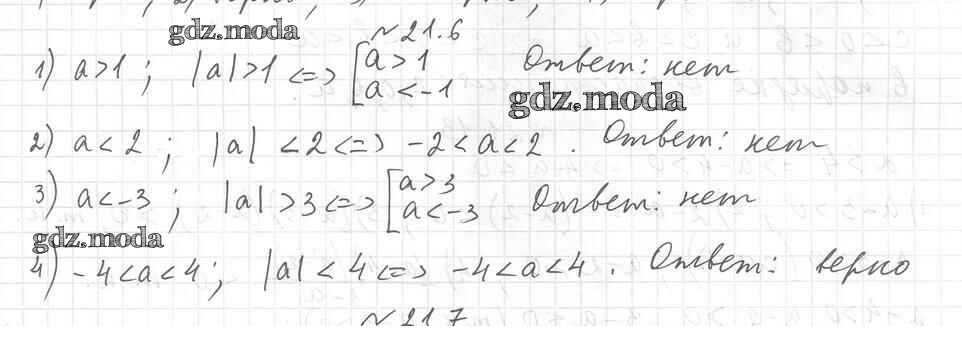 gdz.moda
№21.6
1) a>1 ; |a|>1 <=> [ a>1 Ответ: нет
a<-1
gdz.moda
2) a<2 ; |a|<2 <=> -2<a<2 . Ответ: нет
3) a<-3 ; |a|>3 <=> [ a>3 Ответ: нет
a<-3
gdz.moda
4) -4<a<4 ; |a|<4 <=> -4<a<4 . Ответ: верно
№21.7